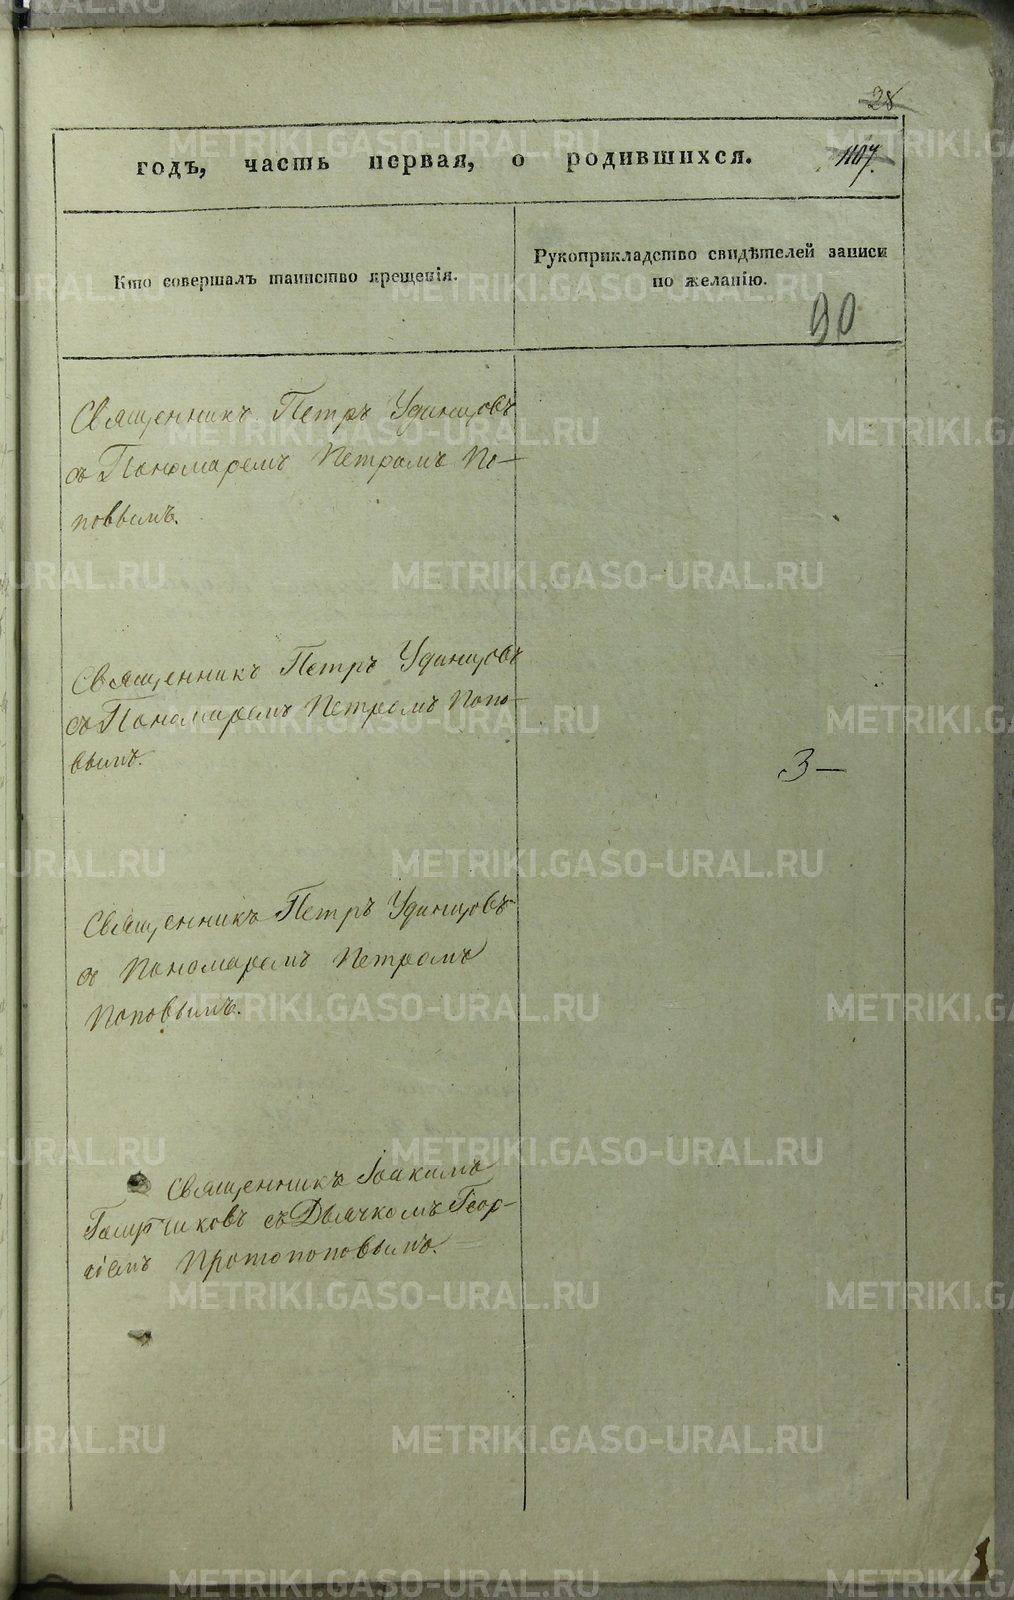 28
годъ, часть первая, о родившихся. 1107.
Кто совершалъ таинство крещенія.
Рукоприкладство свидѣтелей записи
по желанію.
90
Священникъ Петръ Удинцовъ
съ Пономаремъ Петромъ По-
повымъ.
Священникъ Петръ Удинцовъ
съ Пономаремъ Петромъ Попо-
вымъ.
3-
Священникъ Петръ Удинцовъ
съ Пономаремъ Петромъ
Поповымъ.
Священникъ Іоакимъ
съ Дьячкомъ Геор-
гіемъ Протопоповымъ.
METRIKI.GASO-URAL.RU